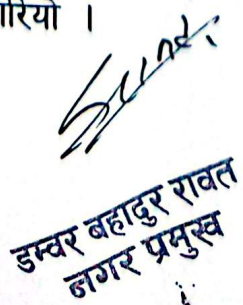 रियो ।
डम्वर बहादुर रावत
नगर प्रमुख